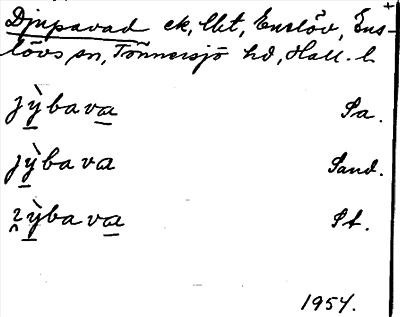 Djupavad ek, Ubt, Enslöv, Ens-
lövs sn, Tönnersjö hd, Hall. l.
jỳ̲bava̲ Sa.
jỳ̲bava Sand.
ỳ̲bava̲ St.
1954.